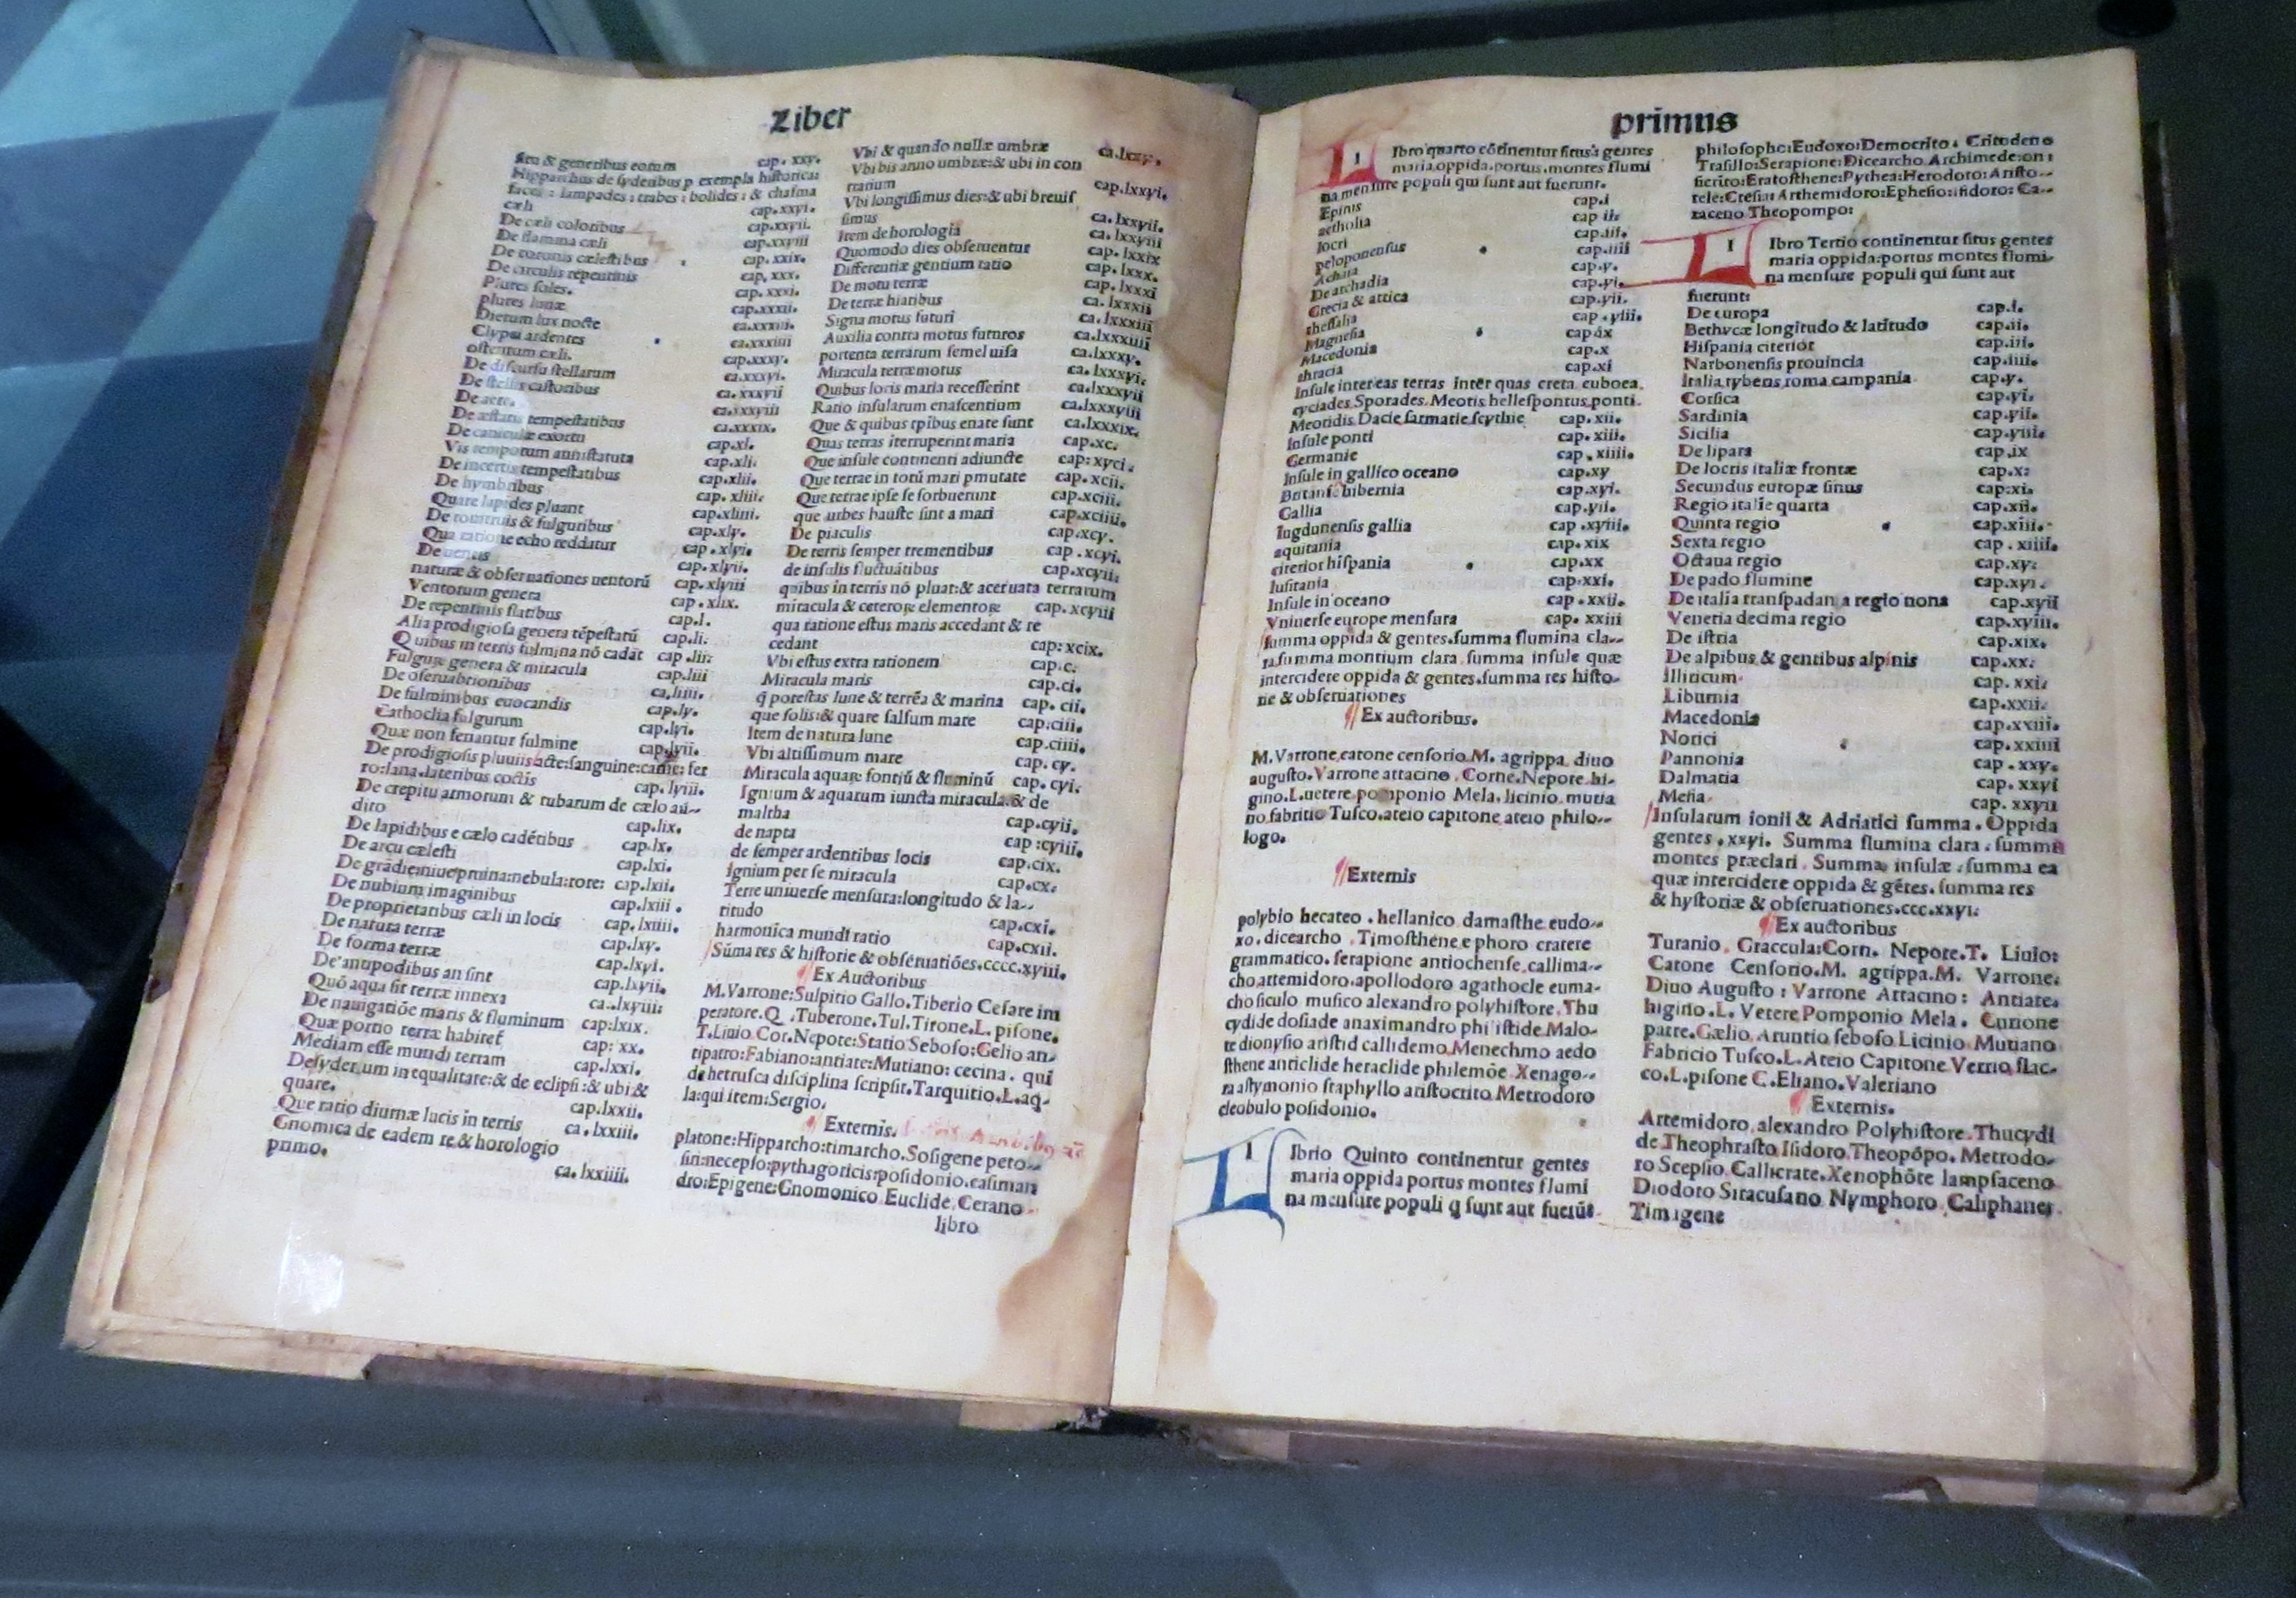 Liber
situ & generibus eorum cap. xxv.
Hipparchus de syderibus p exempla historica:
faces: lampades: trabes: bolides: & chasma
cæli cap.xxvi.
De cæli coloribus cap.xxvii.
De flamma cæli cap.xxviii
De coronis cælestibus cap. xxix.
De circulis repentinis cap. xxx.
Plures soles. cap. xxxi.
plures lunæ cap.xxxii.
Dierum lux nocte ca.xxxiii.
Clypei ardentes ca.xxxiiii
ostentum cæli. cap.xxxv.
De discursu stellarum ca.xxxvi.
De stellis castoribus ca.xxxvii
De aere. ca.xxxviii
De æstatis tempestatibus ca.xxxix.
De caniculæ exortu cap.xl.
Vis temporum anni statuta cap.xli.
De incertis tempestatibus cap.xlii.
De hymbribus cap. xliii.
Quare lapides pluant cap.xliiii.
De tonitruis & fulguribus cap.xlv.
Qua ratione echo reddatur cap.xlvi.
De uentis cap.xlvii.
naturæ & obseruationes uentorū cap.xlviii
Ventorum genera cap.xlix.
De repentinis flatibus cap.l.
Alia prodigiosa genera tēpestatū cap.li.
Quibus in terris fulmina nō cadāt cap.lii:
Fulguꝝ genera & miracula cap.liii
De oseruabtionibus ca.liiii.
De fulminibus euocandis cap.lv.
Cathoclia fulgurum cap.lvi.
Quæ non feriantur fulmine cap.lvii.
De prodigiosis pluuiis lacte:sanguine:carne: fer
ro:lana.lateribus coctis cap.lviii.
De crepitu armorum & tubarum de cælo au-
dito cap.lix.
De lapidibus e cælo cadētibus cap.lx.
De arcu cælesti cap.lxi.
De grādie:niue:pruina:nebula:rore: cap.lxii.
De nubium imaginibus cap.lxiii.
De proprietatibus cæli in locis cap.lxiiii.
De natura terræ cap.lxv.
De forma terræ cap.lxvi.
De antipodibus an sint cap.lxvii.
Quō aqua sit terræ innexa ca.lxviii:
De nauigatiōe maris & fluminum cap:lxix.
Quæ portio terræ habitet cap: xx.
Mediam esse mundi terram cap.lxxi.
De syderum inequalitate:& de eclipsi:& ubi &
quare. cap.lxxii.
Que ratio diurnæ lucis in terris ca.lxxiii.
Gnomica de eadem re.& horologio
primo. ca.lxxiiii.
Vbi & quando nullæ umbræ ca.lxxv.
Vbi bis anno umbræ:& ubi in con
trarium cap.lxxvi.
Vbi longissimus dies:& ubi breuis
simus ca.lxxvii.
Item de horologia ca.lxxviii
Quomodo dies obseruentur cap.lxxix
Differentiæ gentium ratio cap.lxxx.
De motu terræ cap.lxxxi
De terræ hiatibus ca.lxxxii
Signa motus futuri ca.lxxxiii
Auxilia contra motus futuros ca.lxxxiiii
portenta terrarum semel uisa ca.lxxxv.
Miracula terræ motus ca.lxxxvi.
Quibus locis maria recesserint ca.lxxxvii
Ratio insularum enascentium ca.lxxxviii
Que & quibus tpibus enate sunt ca.lxxxix.
Quas terras iterruperint maria cap.xc.
Que insule continenti adiuncte cap:xyci.
Que terrae in totū mari pmutate cap.xcii.
Que terrae ipse se sorbuerunt cap.xciii.
que urbes hauste sint a mari cap.xciiii.
De piaculis cap.xcv.
De terris semper trementibus cap.xcvi.
de insulis fluctuātibus cap.xcvii.
quibus in terris nō pluat:& aceruata terrarum
miracula & ceteroꝝ elementoꝝ cap. xcviii
qua ratione estus maris accedant & re
cedant cap:xcix.
Vbi estus extra rationem cap.c.
Miracula maris cap.ci.
q̄ potestas lune & terrēa & marina cap. cii.
que solis:& quare salsum mare cap.ciii.
Item de natura lune cap.ciiii.
Vbi altissimum mare cap. cv.
Miracula aquaꝝ fontiū & fluminū cap. cvi.
Ignium & aquarum iuncta miracula.& de
maltha cap.cvii.
de napta cap:cviii.
de semper ardentibus locis cap.cix.
Ignium per se miracula cap.cx.
Terre uniuerse mensura:longitudo & la-
titudo cap.cxi.
harmonica mundi ratio cap.cxii.
Sūma res & historie & obseruatiōes.cccc.xviii.
Ex Auctoribus
M.Varrone:Sulpitio Gallo.Tiberio Cesare im
peratore.Q.Tuberone.Tul.Tirone.L. pisone.
T.Liuio Cor.Nepote:Statio Seboso:Gelio an-
tipatro:Fabiano:antiate:Mutiano: cecina. qui
de hetrusca disciplina scripsit.Tarquitio.L.aq-
la:qui item:Sergio.
Externis.
platone:Hipparcho:timarcho.Sosigene peto-
siri:necepso:pythagoricis:posidonio.casiman
dro:Epigene:Gnomonico Euclide Cerano
libro
primus
LIbro quarto cōtinentur situs: gentes
maria.oppida.portus.montes flumi
na mensure populi qui sunt aut fuerunt.
Epirus cap.i
aetholia cap ii.
locri cap.iii.
peloponensus cap.iiii
Achaia cap.v.
De archadia cap.vi.
Grecia & attica cap.vii.
thessalia cap.viii.
Magnesia cap.ix
Macedonia cap.x
thracia cap.xi
Insule inter eas terras inter quas creta euboea.
cyciades.Sporades.Meotis hellespontus ponti.
Meotidis Dacie sarmatie scythie cap. xii.
Insule ponti cap. xiii.
Germanie cap.xiiii.
Insule in gallico oceano cap.xv
Britani: hibernia cap.xvi.
Gallia cap.vii.
lugdunensis gallia cap.xviii.
aquitania cap.xix
citerior hispania cap.xx
lusitania cap.xxi.
Insule in oceano cap.xxii.
Vniuerse europe mensura cap. xxiii
summa oppida & gentes.summa flumina cla-
ra summa montium clara summa insule quæ
intercidere oppida & gentes.summa res histo-
rie & obseruationes
Ex auctoribus.
M.Varrone catone censorio M. agrippa diuo
augusto.Varrone attacino. Corne.Nepote hi-
gino.L.uetere pomponio Mela.licinio mutia
no fabritio Tusco.ateio capitone ateio philo-
logo.
Externis
polybio hecateo.hellanico damasthe eudo-
xo.dicearcho.Timosthene ephoro cratere
grammatico.serapione antiochense.callima-
cho artemidoro.apollodoro agathocle euma-
cho siculo musico alexandro polyhistore.Thu
cydide dosiade anaximandro philistide Malo-
te dionysio aristid callidemo Menechmo aedo
sthene anticlide heraclide philemōe Xenago-
ra astymonio staphyllo aristocrito Metrodoro
cleobulo posidonio.
LIbrio Quinto continentur gentes
maria oppida portus montes flumi
na mensure populi q sunt aut fuerūt.
philosopho:Eudoxo:Democrito. Critodeno
Trasillo:Serapione:Dicearcho Archimede:oni
sicrito:Eratosthene:Pythea:Herodoto:Aristo-
tele:Cresia:Arthemidoro:Ephesio:isidoro: Ca-
raceno Theopompo:
LIbro Tertio continentur situs gentes
maria oppida:portus montes flumi-
na mensure populi qui sunt aut
fuerunt:
De europa cap.i.
Bethycæ longitudo & latitudo cap.ii.
Hispania citerior cap.iii.
Narbonensis prouincia cap.iiii.
Italia tyberis roma campania cap.v.
Corsica cap.vi.
Sardinia cap.vii.
Sicilia cap.viii.
De lipara cap.ix
De locris italiæ frontæ cap.x:
Secundus europæ sinus cap:xi.
Regio italie quarta cap.xii.
Quinta regio cap.xiii.
Sexta regio cap.xiiii.
Octaua regio cap.xv:
De pado flumine cap.xvi.
De italia transpadana regio nona cap.xvii
Venetia decima regio cap.xviii.
De istria cap.xix.
De alpibus & gentibus alpinis cap.xx:
Illiricum cap. xxi.
Liburnia cap.xxii.
Macedonia cap.xxiii.
Norici cap.xxiiii
Pannonia cap.xxv.
Dalmatia cap. xxvi
Mesia cap. xxvii
Insularum ionii & Adriatici summa. Oppida
gentes.xxvi. Summa flumina clara. summa
montes præclari. Summa insulæ. summa ea
quæ intercidere oppida & gētes. summa res
& hystoriæ & obseruationes.ccc.xxvi.
Ex auctoribus
Turanio. Graccula:Corn. Nepote.T. Liuio:
Catone Censorio.M. agrippa.M. Varrone.
Diuo Augusto: Varrone Attacino: Antiate.
higino.L. Vetere Pomponio Mela. Curione
patre.Gælio Aruntio seboso Licinio Mutiano
Fabricio Tusco.L.Ateio Capitone Verrio flac-
co.L.pisone C.Eliano.Valeriano
Externis.
Artemidoro alexandro Polyhistore.Thucydi
de Theophrasto Isidoro Theopōpo. Metrodo-
ro Scepsio Callicrate.Xenophōte lampsaceno
Diodoro Siracusano Nymphoro Caliphanes
Timagene